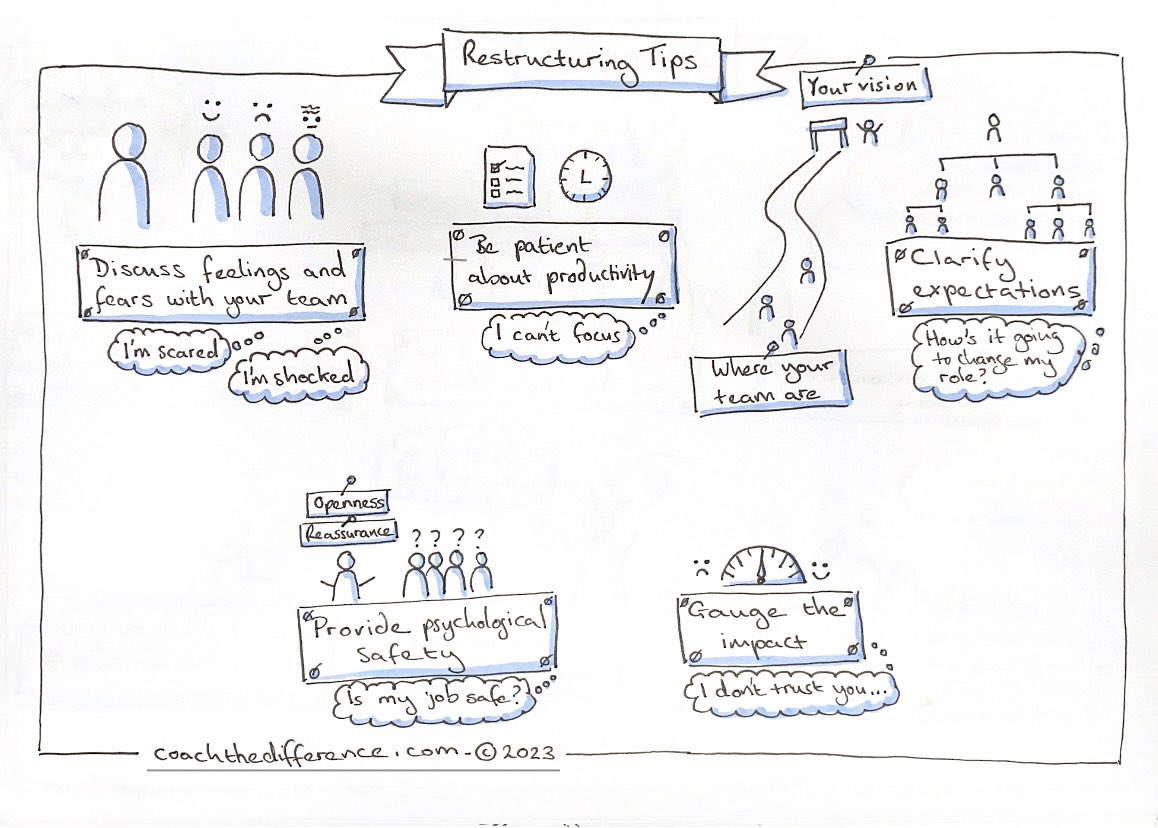 Restructuring Tips
Discuss feelings and
fears with your team
I'm scared
I'm shocked
Be patient
about productivity
I can't focus
Your vision
Where your
team are
Clarify
expectations
How's it going
to change my
role?
Openness
Reassurance
? ? ? ?
Provide psychological
safety
Is my job safe?
Gauge the
impact
I don't trust you...
coachthedifference.com - © 2023